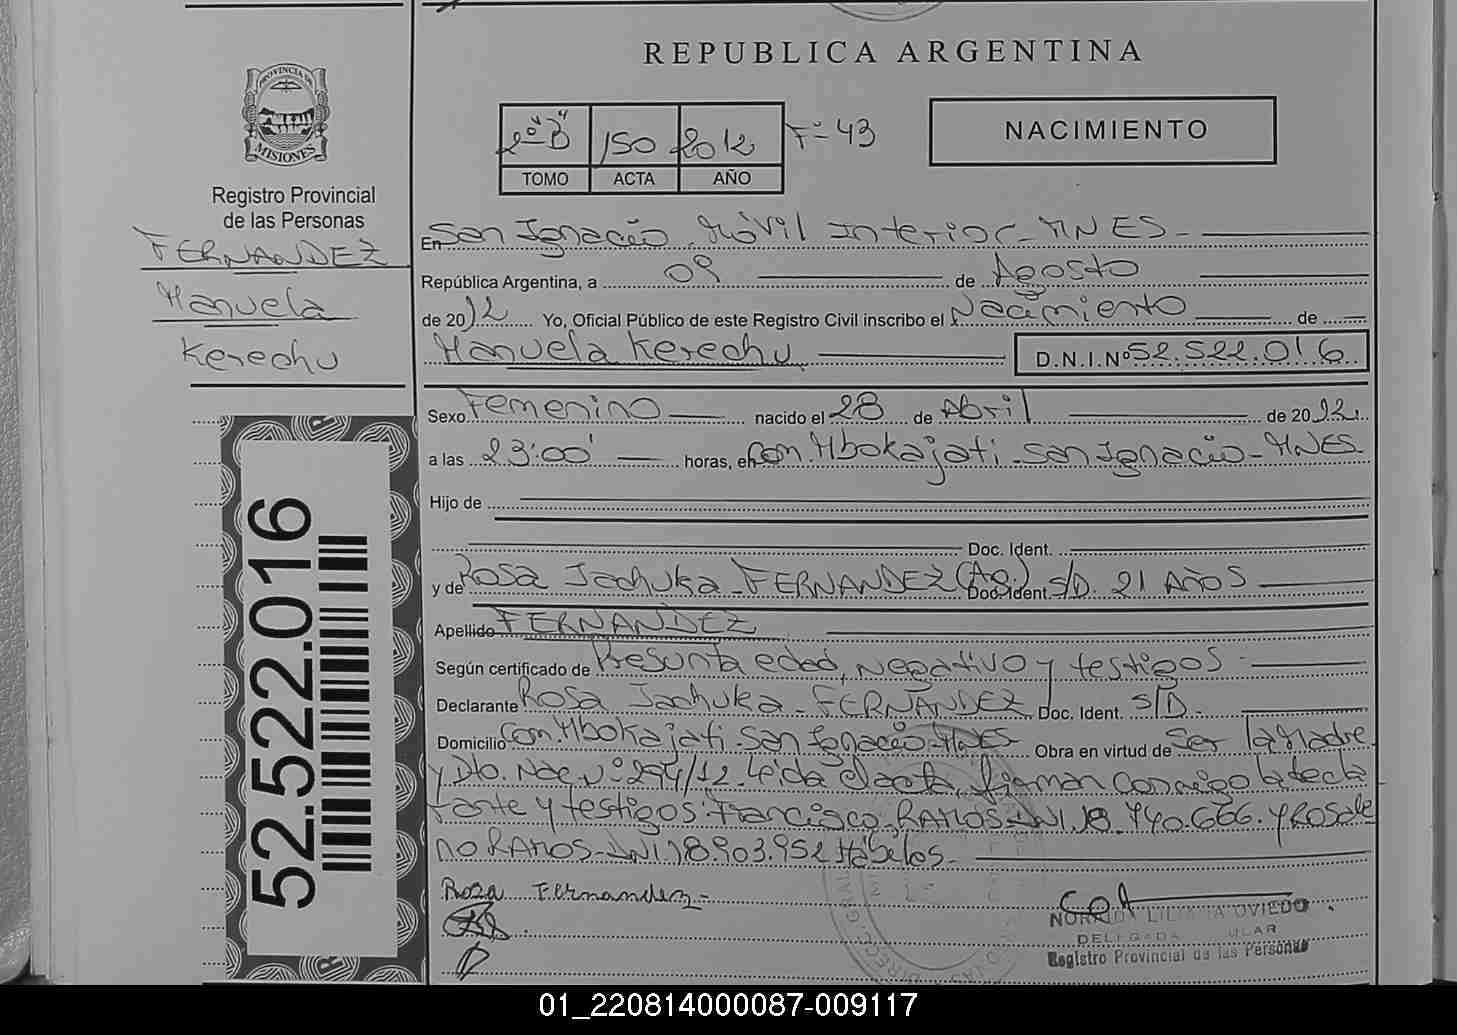 REPUBLICA ARGENTINA
PROVINCIA DE
MISIONES
Registro Provincial
de las Personas
FERNANDEZ
Manuela
Kerechu
52.522.016
2º "B" 150 2012 Fº 43
TOMO ACTA AÑO
NACIMIENTO
En San Ignacio Móvil Interior - MNES -
República Argentina, a 09 de Agosto
de 2012 Yo, Oficial Público de este Registro Civil inscribo el Nacimiento de
Manuela Kerechu D.N.I.Nº 52.522.016
Sexo Femenino nacido el 28 de Abril de 2012
a las 23:00' horas, en Com. Mbokajati - San Ignacio - MNES
Hijo de
Doc. Ident.
y de Rosa Jachuka FERNANDEZ (Ag.) Doc. Ident. S/D. 21 AÑOS
Apellido FERNANDEZ
Según certificado de Presunta edad, Negativo y testigos -
Declarante Rosa Jachuka - FERNANDEZ Doc. Ident. S/D.
Domicilio Com. Mbokajati - San Ignacio - MNES Obra en virtud de Ser la Madre
y Dto. Nac. Nº 294/12. Leída el acta, firman conmigo la decla
rante y testigos: Francisco RAMOS - DNI 18.740.666. y Rosale
no RAMOS - DNI 18.903.952 Hábiles. -
Rosa Fernandez -
OVIEDO
DELEGADA
Registro Provincial de las Personas
01_220814000087-009117